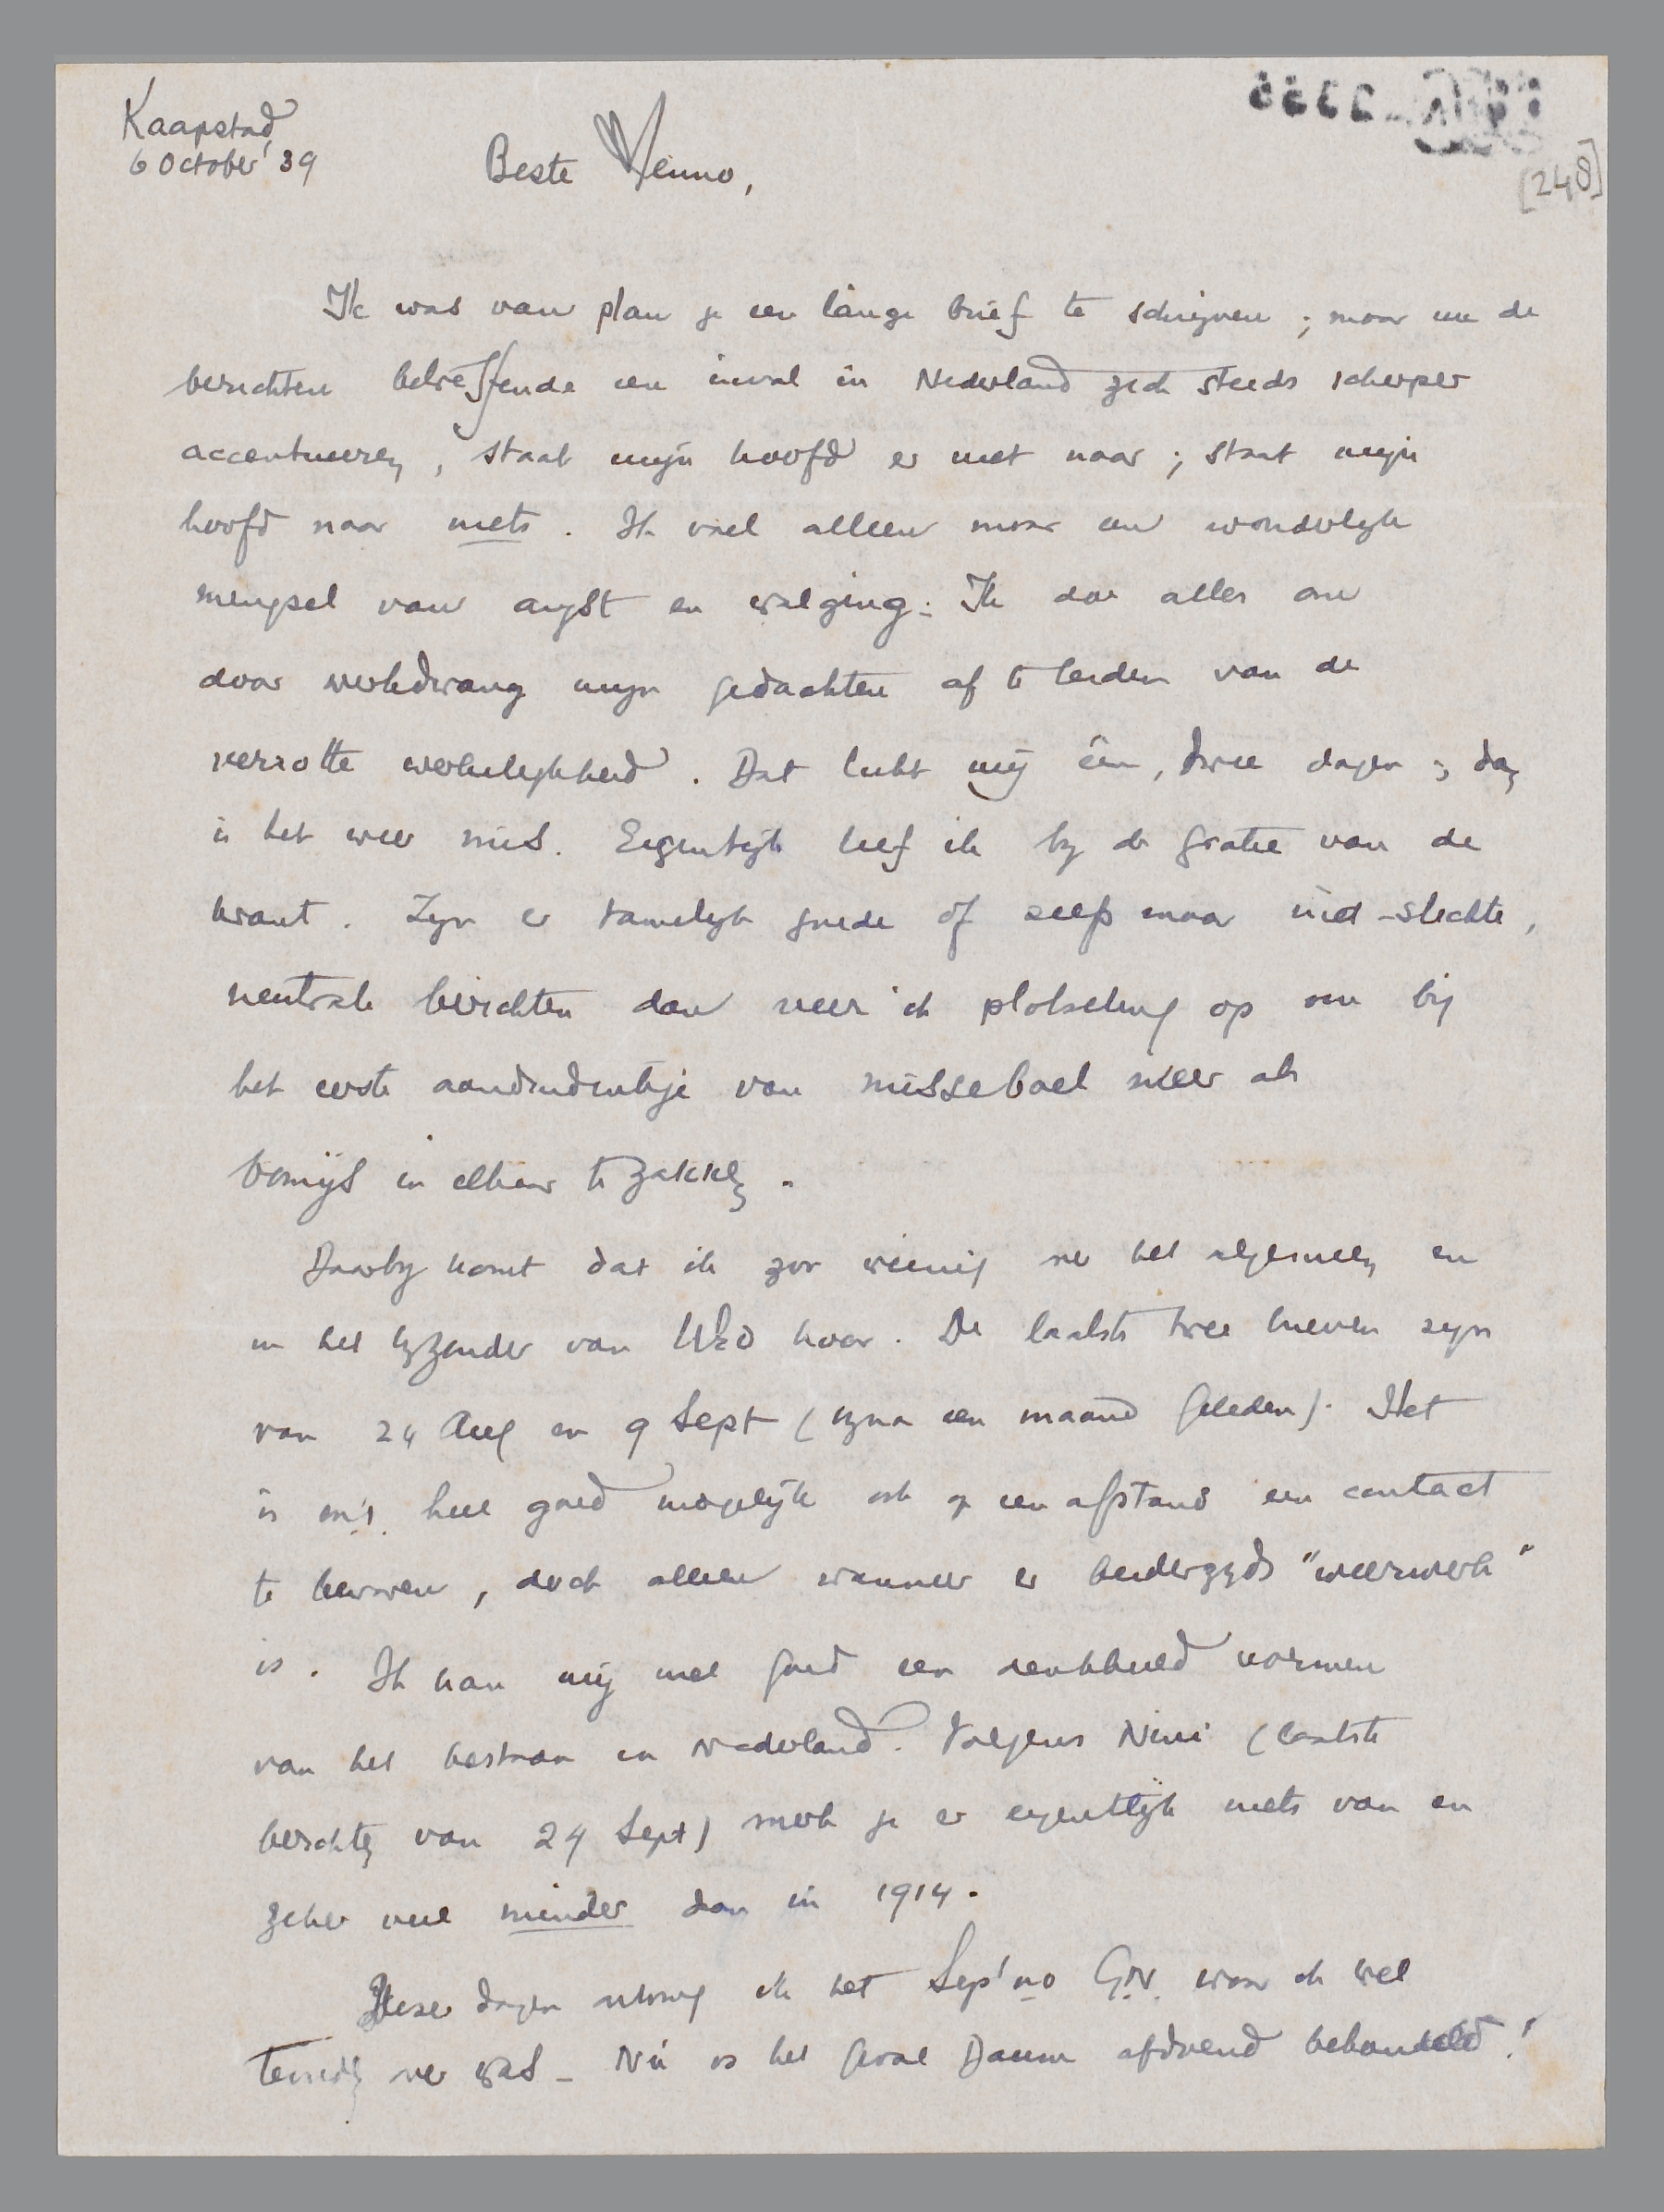 Kaapstad
6 October '39
Beste Menno,
[248]
Ik was van plan je een lange brief te schrijven ; maar nu de
berichten betreffende een inval in Nederland zich steeds scherper
accentueeren, staat mijn hoofd er niet naar ; staat mijn
hoofd naar niets. Ik voel alleen maar een wonderlijk
mengsel van angst en walging. Ik doe alles om
door werkdwang mijn gedachten af te leiden van de
verrotte werkelijkheid. Dat lukt mij één, twee dagen ; dan
is het weer mis. Eigenlijk leef ik bij de gratie van de
krant. Zijn er tamelijk goede of zelfs maar niet-slechte,
neutrale berichten dan veer ik plotseling op om bij
het eerste aanduidentje van misse boel weer als
bomijs in elkaar te zakken.
Daarbij komt dat ik zoo weinig in het algemeen en
in het bijzonder van U2 hoor. De laatste twee brieven zijn
van 24 Aug en 9 Sept (bijna een maand geleden). Het
is m.i. heel goed mogelijk ook op een afstand een contact
te bewaren, doch alleen wanneer er beiderzijds "weerwerk"
is. Ik kan mij niet goed een denkbeeld vormen
van het bestaan in Nederland. Volgens Nini (laatste
berichten van 24 Sept) merk je er eigenlijk niets van en
zeker veel minder dan in 1914.
Dezer dagen ontving ik het Sept' no G.N. waar ik wel
tevreden over was - Nu is het geval Daum afdoend behandeld!